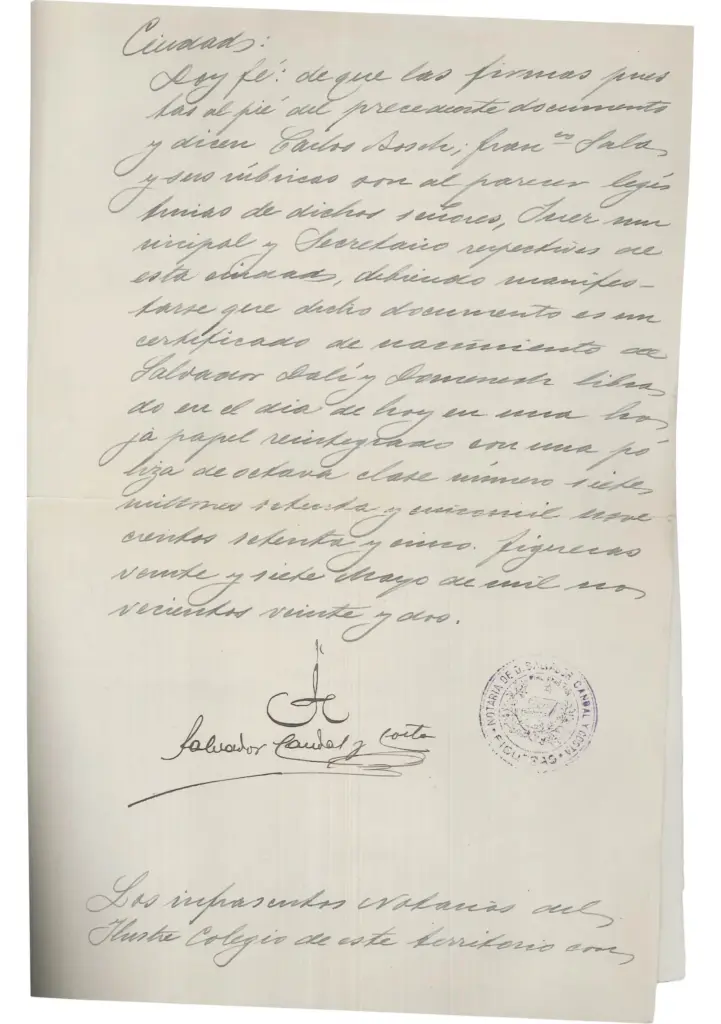 Ciudad:
Doy fé: de que las firmas pues
tas al pié del precedente documento
y dicen Carlos Bosch; Fran.co Sala,
y sus rúbricas son al parecer legí
timas de dichos señores, Juez mu
nicipal y Secretario respectivos de
esta ciudad, debiendo manifes-
tarse que dicho documento es un
certificado de nacimiento de
Salvador Dalí y Domenech libra
do en el dia de hoy en una ho
ja papel reintegrado con una pó
liza de octava clase número siete
millones setenta y cinco mil nove
cientos setenta y cinco. Figueras
veinte y siete Mayo de mil no
vecientos veinte y dos.
Salvador Candal y Costa
NOTARIA DE D. SALVADOR CANDAL Y COSTA
FIGUERAS
Los infrascritos Notarios del
Ilustre Colegio de este territorio con